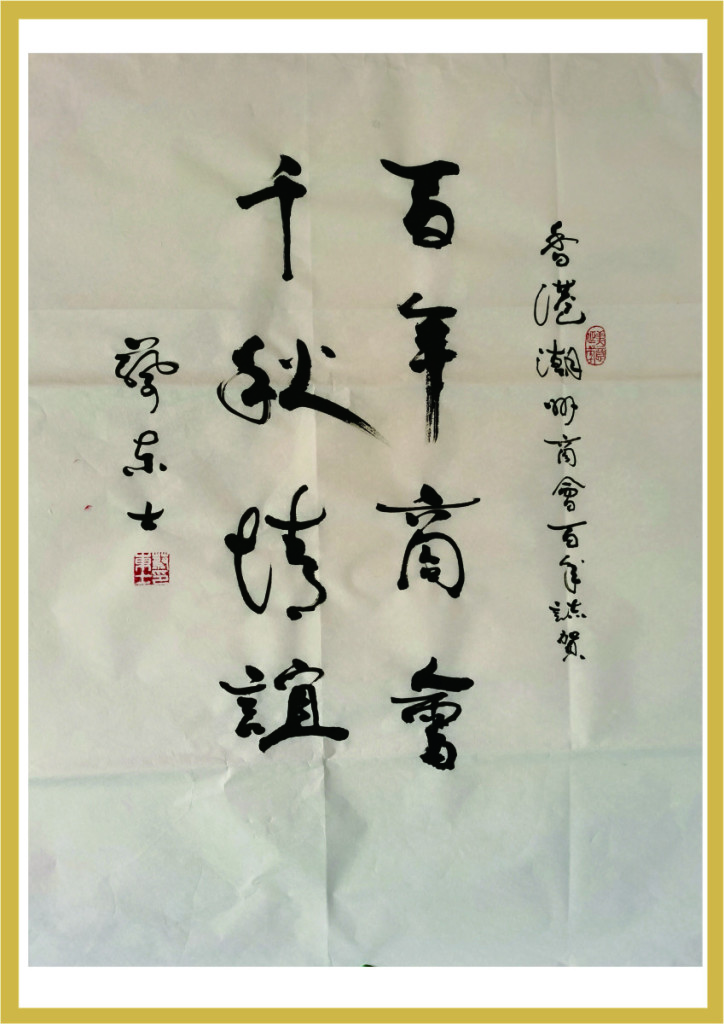 香港潮州商會百年誌賀
百年商會
千秋情誼
蔡東士